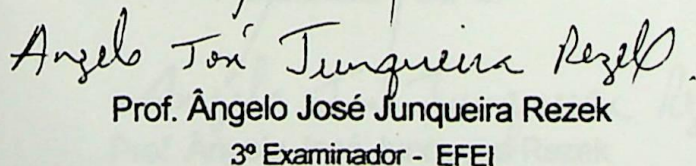 Angelo José Junqueira Rezek.
Prof. Ângelo José Junqueira Rezek
3º Examinador - EFEI